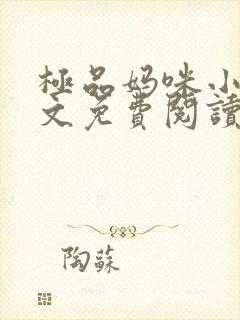 極品妈咪小
文免費閱讀
陶蘇